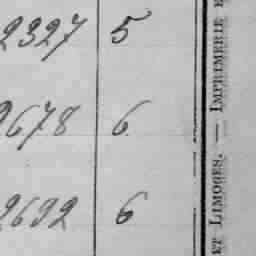 2327 5
2678 6
2692 6
ET LIMOGES. — IMPRIMERIE E